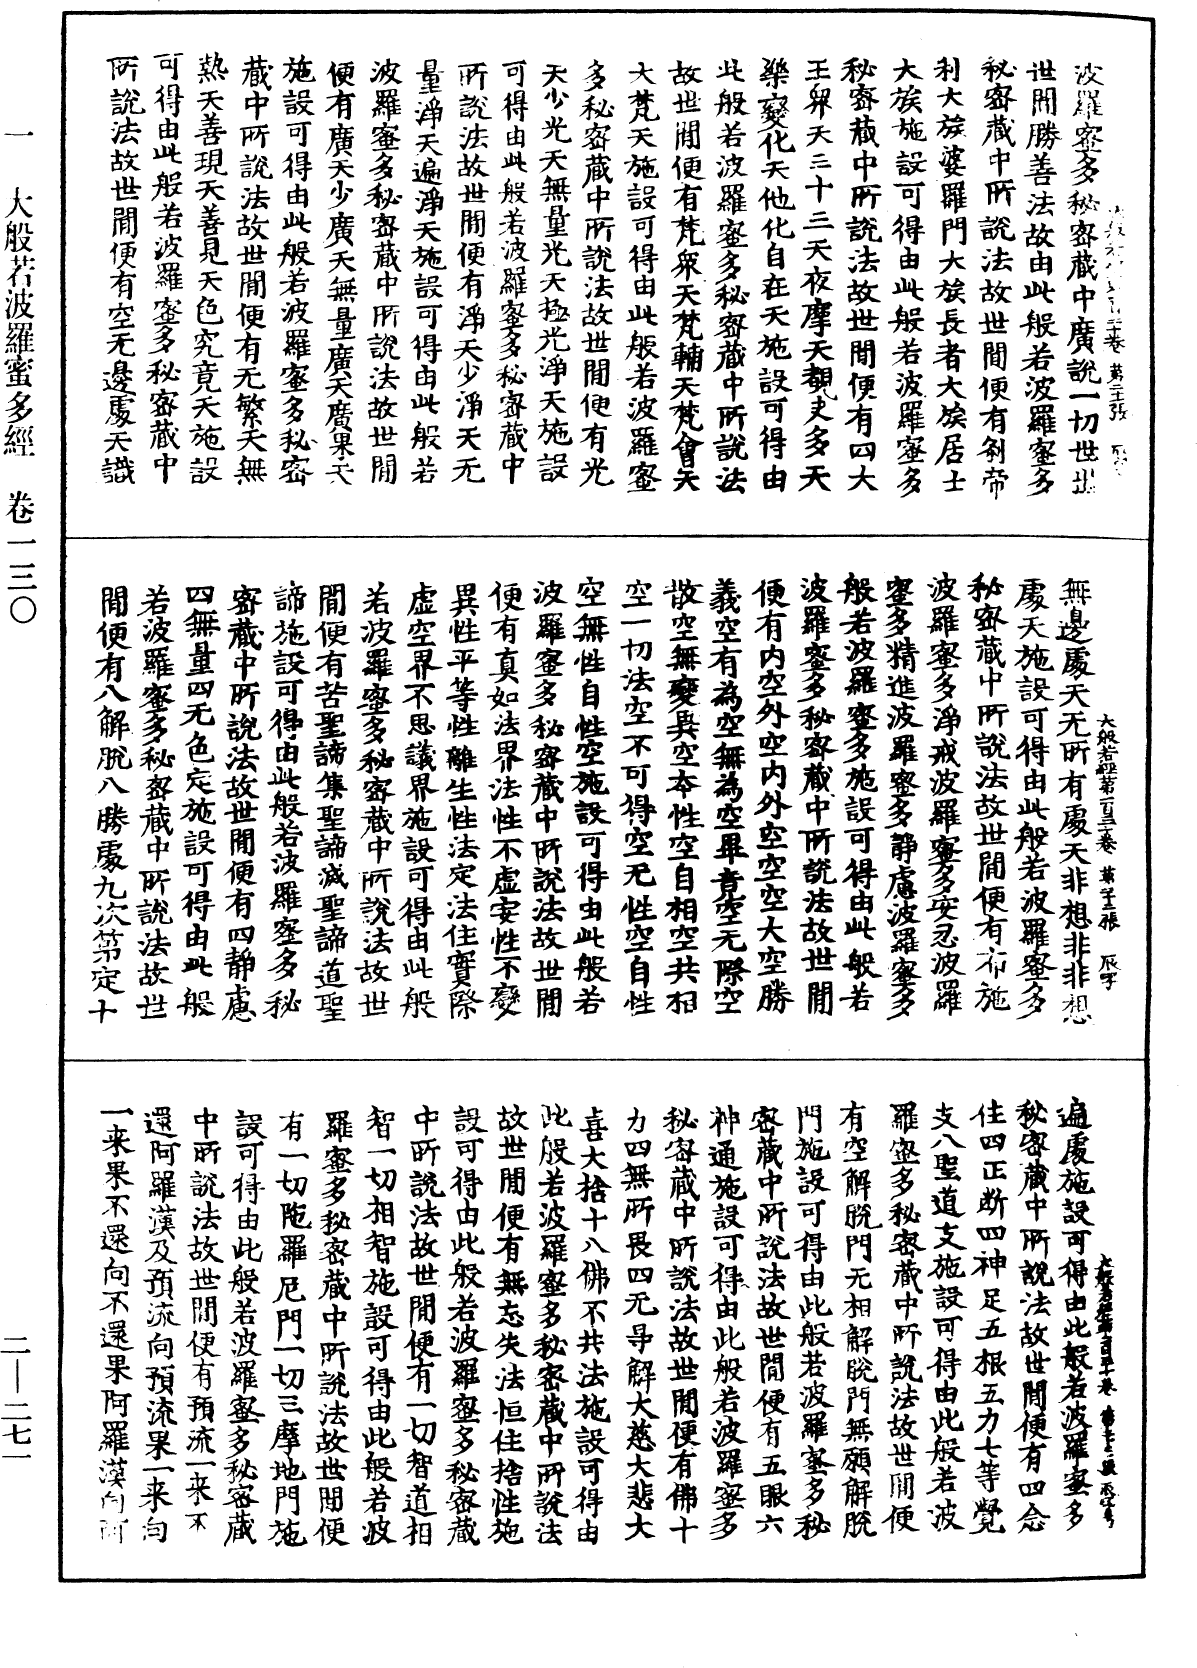 波羅蜜多秘密藏中廣說一切世出
世間勝善法故由此般若波羅蜜多
秘密藏中所說法故世間便有刹帝
利大族婆羅門大族長者大族居士
大族施設可得由此般若波羅蜜多
秘密藏中所說法故世間便有四大
王衆天三十三天夜摩天覩史多天
樂變化天他化自在天施設可得由
此般若波羅蜜多秘密藏中所說法
故世間便有梵衆天梵輔天梵會天
大梵天施設可得由此般若波羅蜜
多秘密藏中所說法故世間便有光
天少光天無量光天極光淨天施設
可得由此般若波羅蜜多秘密藏中
所說法故世間便有淨天少淨天无
量淨天遍淨天施設可得由此般若
波羅蜜多秘密藏中所說法故世間
便有廣天少廣天無量廣天廣果天
施設可得由此般若波羅蜜多秘密
藏中所說法故世間便有无繁天無
熱天善現天善見天色究竟天施設
可得由此般若波羅蜜多秘密藏中
所說法故世間便有空无邊處天識
大般若經第一百三十卷 第二十二張 辰字
無邊處天无所有處天非想非非想
處天施設可得由此般若波羅蜜多
秘密藏中所說法故世間便有布施
波羅蜜多淨戒波羅蜜多安忍波羅
蜜多精進波羅蜜多靜慮波羅蜜多
般若波羅蜜多施設可得由此般若
波羅蜜多秘密藏中所說法故世間
便有内空外空内外空空空大空勝
義空有為空無為空畢竟空无際空
散空無變異空本性空自相空共相
空一切法空不可得空无性空自性
空無性自性空施設可得由此般若
波羅蜜多秘密藏中所說法故世間
便有真如法界法性不虛妄性不變
異性平等性離生性法定法住實際
虛空界不思議界施設可得由此般
若波羅蜜多秘密藏中所說法故世
間便有苦聖諦集聖諦滅聖諦道聖
諦施設可得由此般若波羅蜜多秘
密藏中所說法故世間便有四靜慮
四無量四无色定施設可得由此般
若波羅蜜多秘密藏中所說法故世
間便有八解脫八勝處九次第定十
遍處施設可得由此般若波羅蜜多
秘密藏中所說法故世間便有四念
住四正斷四神足五根五力七等覺
支八聖道支施設可得由此般若波
羅蜜多秘密藏中所說法故世間便
有空解脫門无相解脫門無願解脫
門施設可得由此般若波羅蜜多秘
密藏中所說法故世間便有五眼六
神通施設可得由此般若波羅蜜多
秘密藏中所說法故世間便有佛十
力四無所畏四无㝵解大慈大悲大
喜大捨十八佛不共法施設可得由
此般若波羅蜜多秘密藏中所說法
故世間便有無忘失法恒住捨性施
設可得由此般若波羅蜜多秘密藏
中所說法故世間便有一切智道相
智一切相智施設可得由此般若波
羅蜜多秘密藏中所說法故世間便
有一切陁羅尼門一切三摩地門施
設可得由此般若波羅蜜多秘密藏
中所說法故世間便有預流一来不
還阿羅漢及預流向預流果一来向
一来果不還向不還果阿羅漢向阿
一 大般若波羅蜜多經 卷一三〇
二—二七一